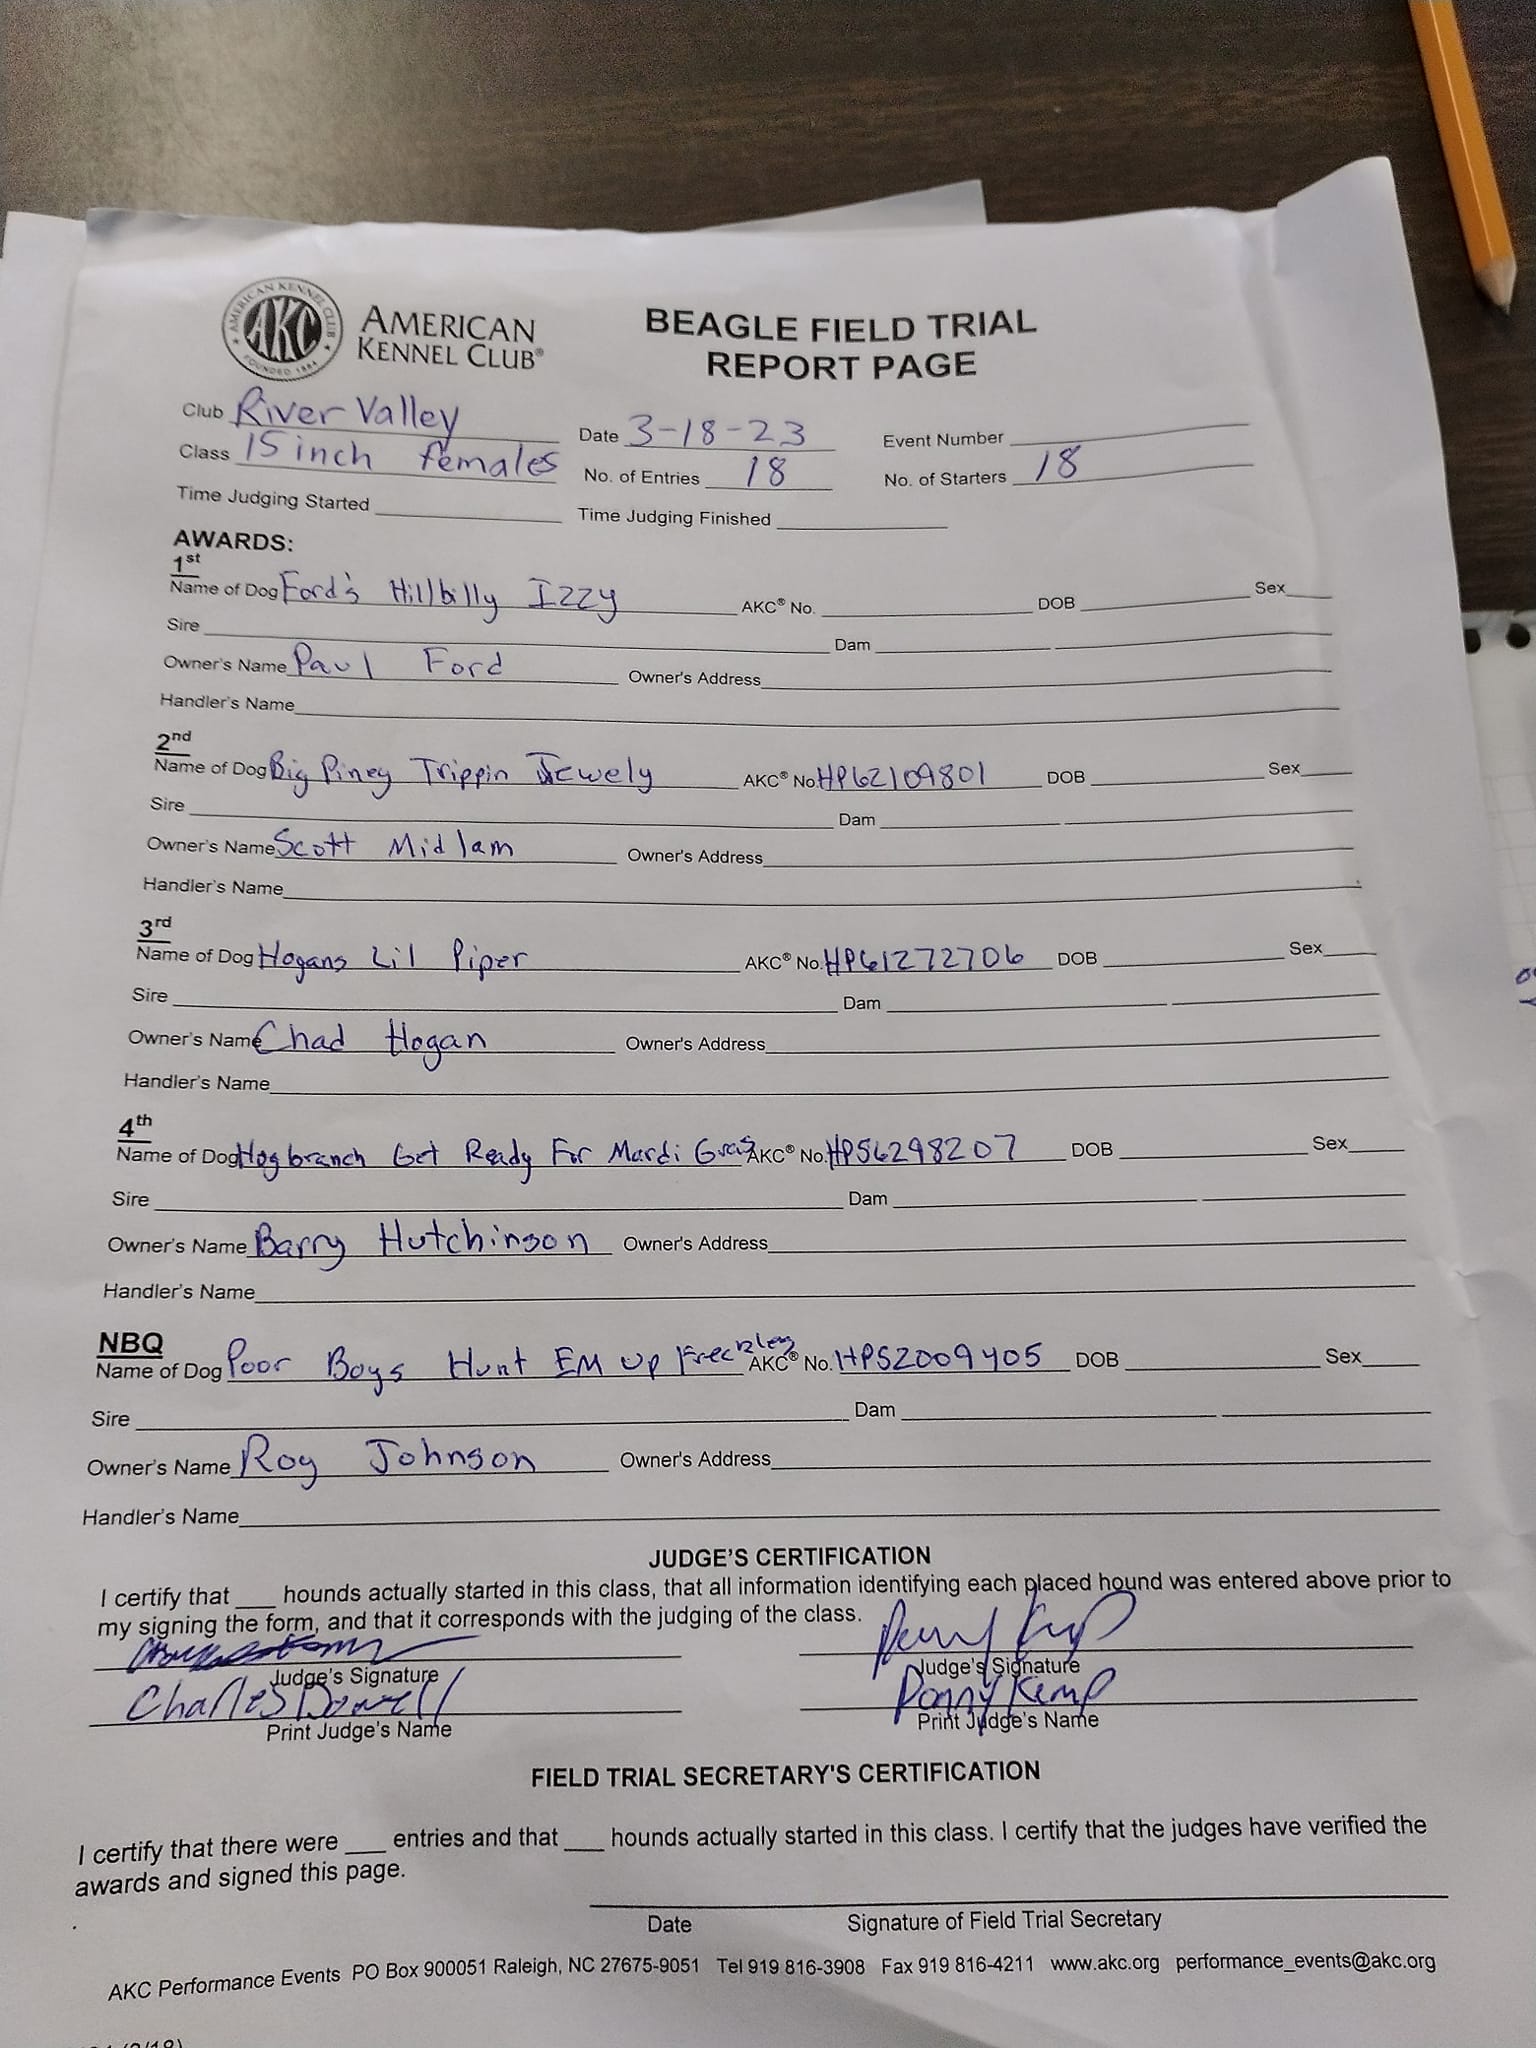 AMERICAN KENNEL CLUB
AKC
FOUNDED 1884
AMERICAN
KENNEL CLUB®
BEAGLE FIELD TRIAL
REPORT PAGE
Club River Valley Date 3-18-23 Event Number
Class 15 inch females No. of Entries 18 No. of Starters 18
Time Judging Started Time Judging Finished
AWARDS:
1st
Name of Dog Ford's Hillbilly Izzy AKC® No. DOB Sex
Sire Dam
Owner's Name Paul Ford Owner's Address
Handler's Name
2nd
Name of Dog Big Piney Trippin Jewely AKC® No. HP62109801 DOB Sex
Sire Dam
Owner's Name Scott Midlam Owner's Address
Handler's Name
3rd
Name of Dog Hogans Lil Piper AKC® No. HP61272706 DOB Sex
Sire Dam
Owner's Name Chad Hogan Owner's Address
Handler's Name
4th
Name of Dog Hogbranch Get Ready For Mardi Gras AKC® No. HP56298207 DOB Sex
Sire Dam
Owner's Name Barry Hutchinson Owner's Address
Handler's Name
NBQ
Name of Dog Poor Boys Hunt EM up Freckles AKC® No. HP52009405 DOB Sex
Sire Dam
Owner's Name Roy Johnson Owner's Address
Handler's Name
JUDGE'S CERTIFICATION
I certify that ___ hounds actually started in this class, that all information identifying each placed hound was entered above prior to
my signing the form, and that it corresponds with the judging of the class.
Judge's Signature Judge's Signature
Charles Dowell Donny Kemp
Print Judge's Name Print Judge's Name
FIELD TRIAL SECRETARY'S CERTIFICATION
I certify that there were ___ entries and that ___ hounds actually started in this class. I certify that the judges have verified the
awards and signed this page.
Date Signature of Field Trial Secretary
AKC Performance Events PO Box 900051 Raleigh, NC 27675-9051 Tel 919 816-3908 Fax 919 816-4211 www.akc.org performance_events@akc.org